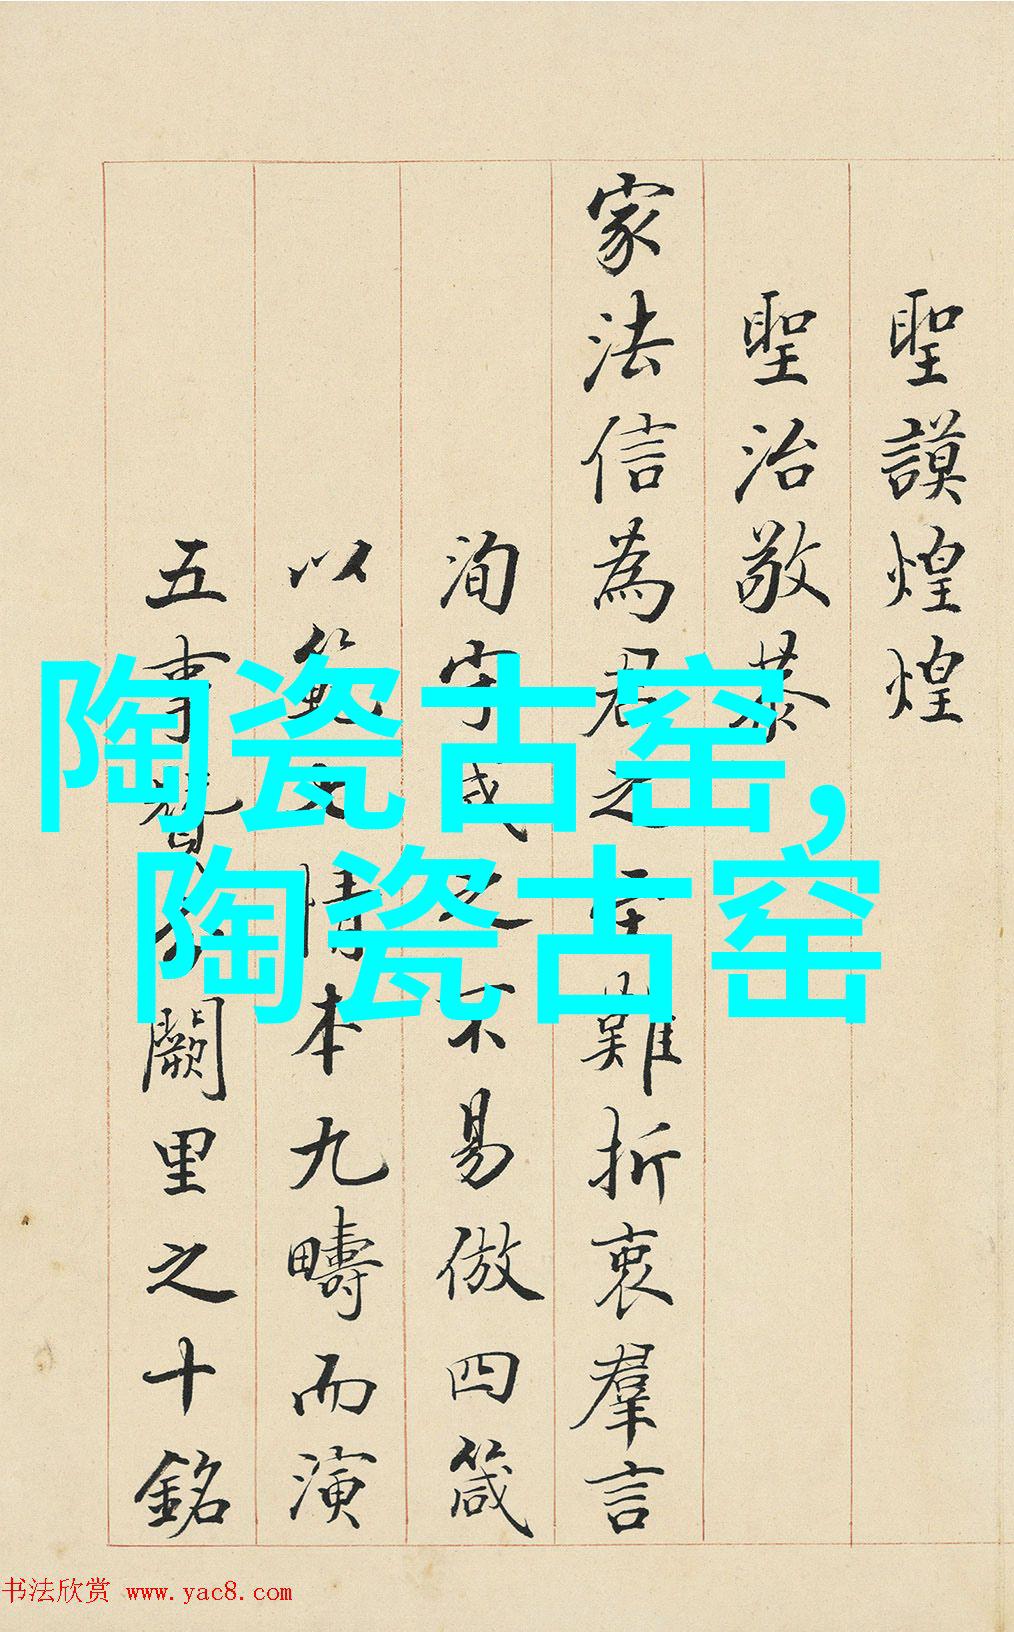 聖謨煌煌
聖治敬恭
家法信為君之至難折衷羣言
洵守成之不易倣四箴
以範情本九疇而演
五事贊闕里之十銘
陶瓷古窑,
陶瓷古窑
书法欣赏 www.yac8.com